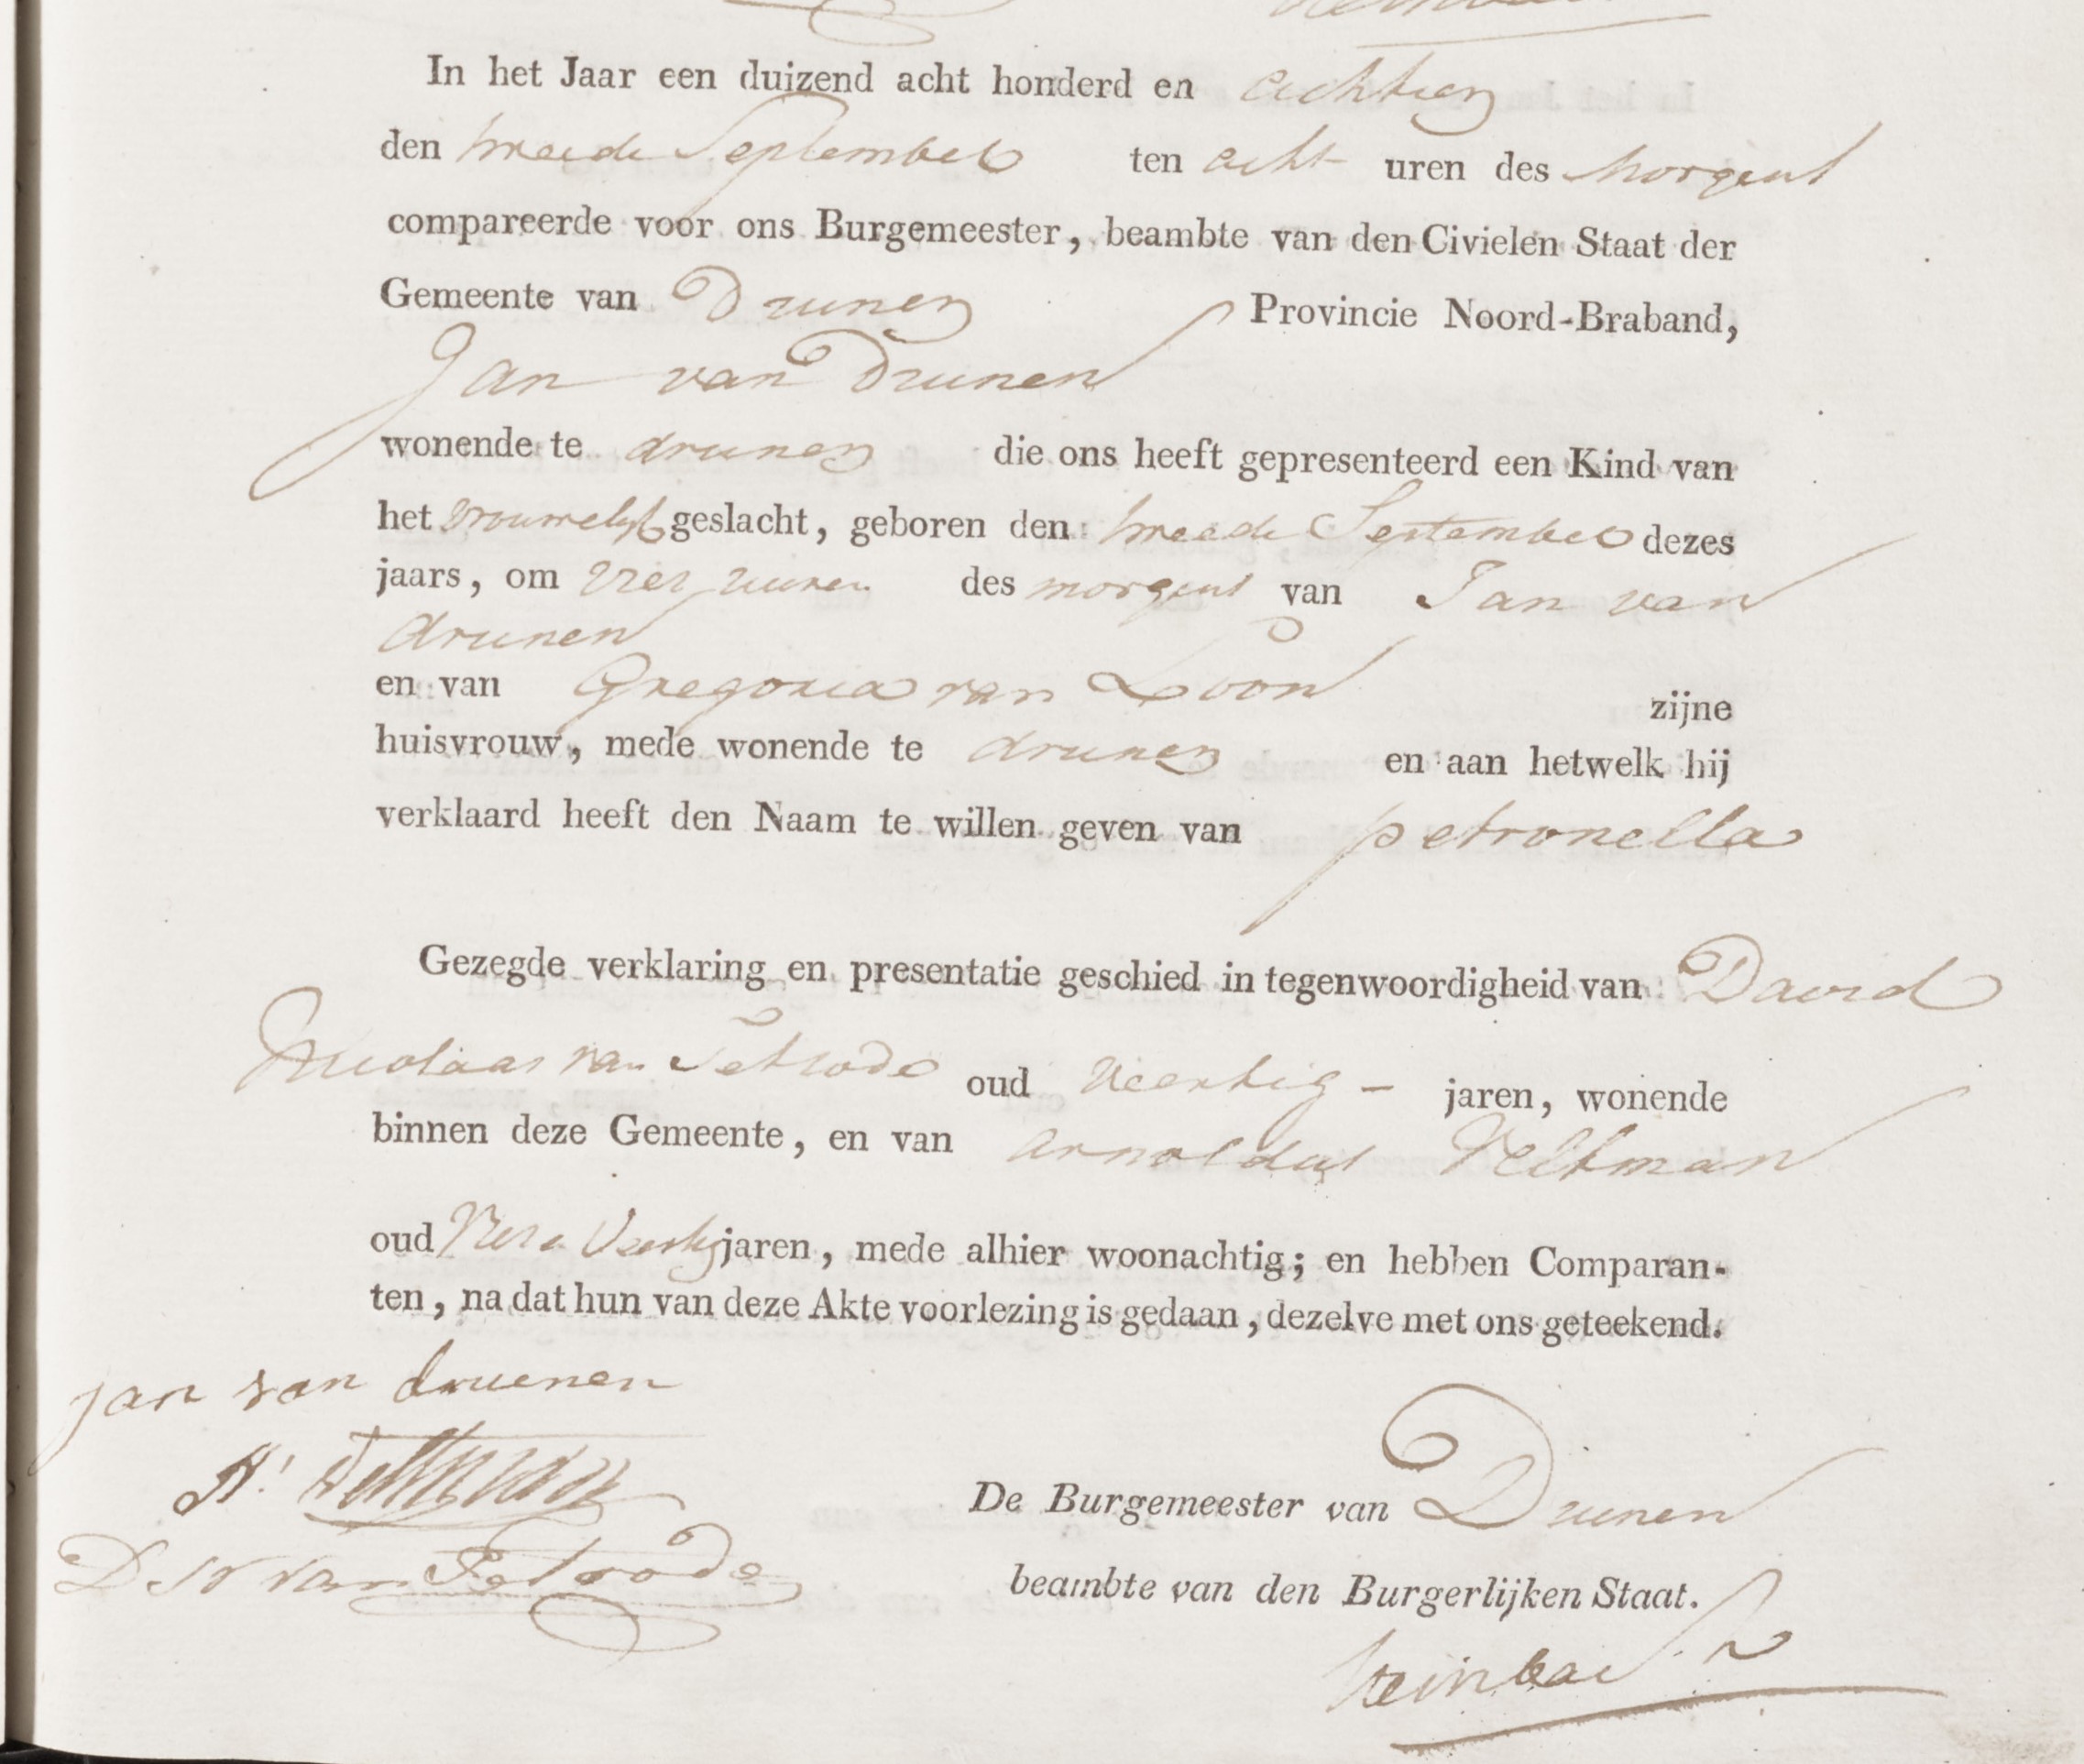 In het Jaar een duizend acht honderd en achtien
den tweede September ten acht uren des morgens
compareerde voor ons Burgemeester, beambte van den Civielen Staat der
Gemeente van Drunen Provincie Noord-Braband,
Jan van Drunen
wonende te drunen die ons heeft gepresenteerd een Kind van
het vrouwelyk geslacht, geboren den tweede September dezes
jaars, om vier uuren des morgens van Jan van
drunen
en van Gregoria van Loon zijne
huisvrouw, mede wonende te drunen en aan hetwelk hij
verklaard heeft den Naam te willen geven van petronella
Gezegde verklaring en presentatie geschied in tegenwoordigheid van David
Nicolaas van Tetrode oud Veertig - jaren, wonende
binnen deze Gemeente, en van arnoldus Veltman
oud Veertig jaren, mede alhier woonachtig; en hebben Comparan-
ten, na dat hun van deze Akte voorlezing is gedaan, dezelve met ons geteekend.
jan van druenen
A: Veltman
D N van Tetrode
De Burgemeester van Drunen
beambte van den Burgerlijken Staat.